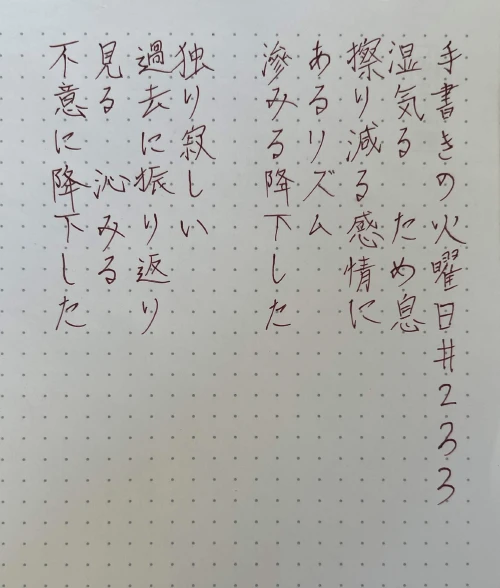 手書きの火曜日#233
湿気る ため息
擦り減る感情に
あるリズム
滲みる降下した
独り寂しい
過去に振り返り
見る 沁みる
不意に降下した